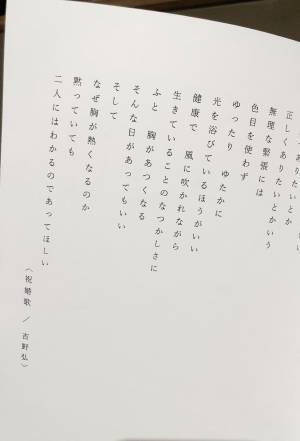 ありたいとか
正しくありたいとか
無理な緊張には
色目を使わず
ゆったり ゆたかに
光を浴びているほうがいい
健康で 風に吹かれながら
生きていることのなつかしさに
ふと 胸があつくなる
そんな日があってもいい
そして
なぜ胸が熱くなるのか
黙っていても
二人にはわかるのであってほしい
（祝婚歌 / 吉野弘）